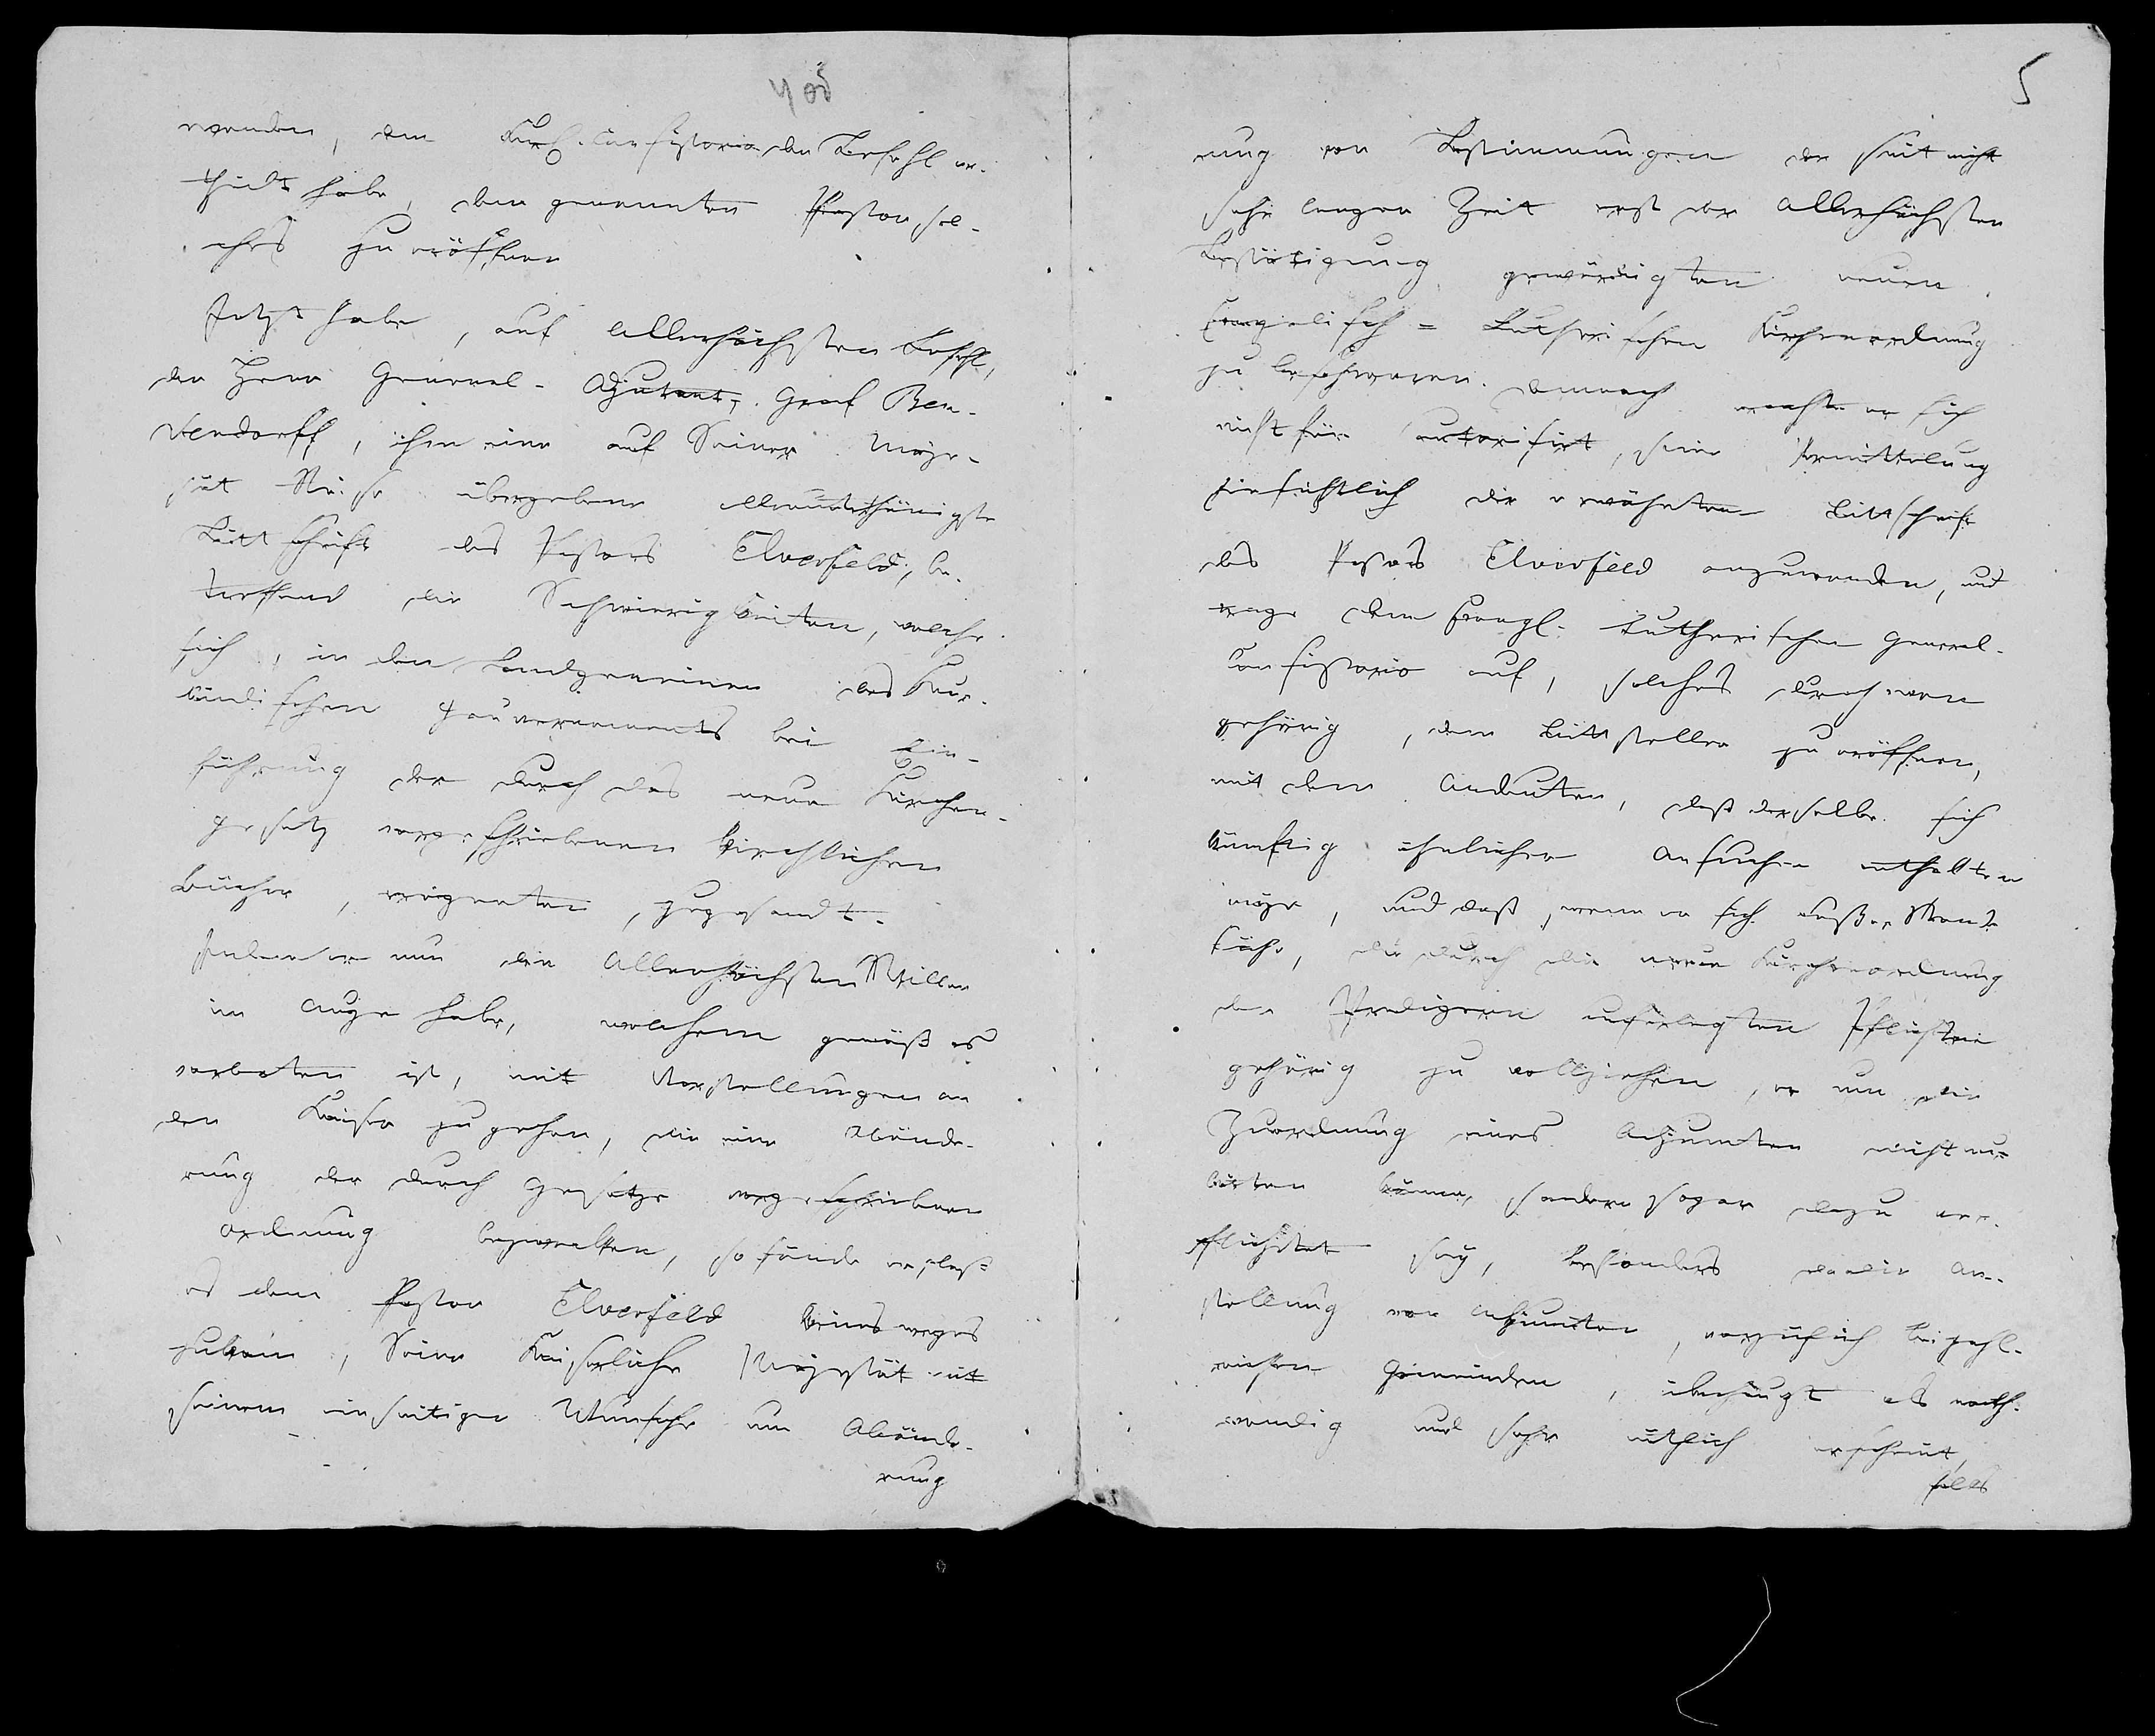 4 od
wenden, dem Kurl. Consistorio den Befehl er-
theilt habe, dem genannten Pastor sol-
ches zu eröffnen
Jetzt habe, auf Allerhöchsten Befehl,
der Herr General-Adjutant, Graf Ben-
kendorff, ihm eine auf Seiner Maje-
stät Reise übergebene allerunterthänigste
Bittschrift des Pastors Elverfeld, be-
treffend die Schwierigkeiten, welche
sich, in den Landgemeinen des Kur-
ländischen Gouvernements bei Ein-
führung der durch das neue Kirchen-
gesetz vorgeschriebenen kirchlichen
Bücher, ereigneten, zugesandt.
Indem er nun den Allerhöchsten Willen
im Auge habe, welchem gemäß es
verboten ist, mit Vorstellungen an
den Kaiser zu gehen, die eine Abände-
rung der durch Gesetze vorgeschriebenen
Ordnung bezwecken, so fände er, daß
es dem Pastor Elverfeld keines weges
zukäm, Seine Kaiserliche Majestät mit
seinem einseitigen Wunsche um Abände-
rung
5
rung von Bestimmungen der seit nicht
sehr langer Zeit erst der Allerhöchsten
Bestätigung gewürdigten neuen
Evangelisch-Lutherischen Kirchenordnung
zu beschweren. Demnach erachte er sich
nicht für autorisirt, seine Vermittelung
hinsichtlich der erwähnten Bittschrift
des Pastors Elverfeld anzuwenden, und
trage dem Evangl. Lutherischen General-
Consistorio auf, solches durch wen
gehörig, dem Bittsteller zu eröffnen,
mit dem Andeuten, daß derselbe sich
künftig ähnlicher Ansuchen enthalten
möge, und daß, wenn er sich außer Stande
sähe, die durch die neue Kirchenordnung
den Predigern auferlegten Pflichten
gehörig zu vollziehen, er um die
Zuordnung eines Adjuncten nicht nur
bitten könne, sondern sogar dazu ver-
pflichtet sey, besonders da die An-
stellung von Adjuncten, vorzüglich bei zahl-
reichen Gemeinden, überhaupt als noth-
wendig und sehr nützlich erscheint,
falls